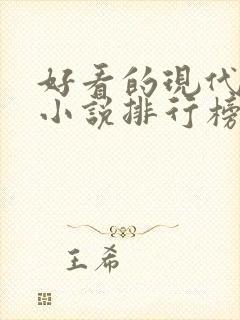 好看的现代
小说排行榜
王希